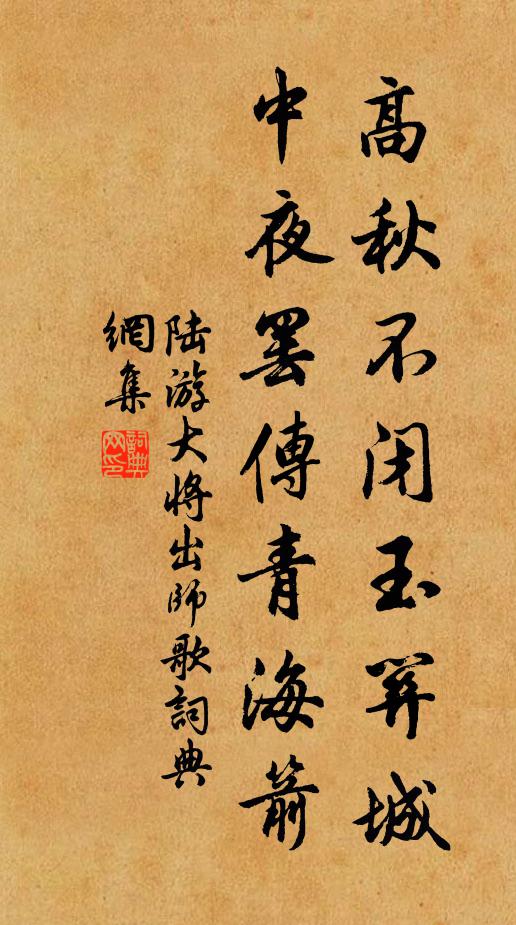 高秋不闭玉关城
中夜罢傳青海箭
陆游大将出师歌詞典
網集
詞典网印